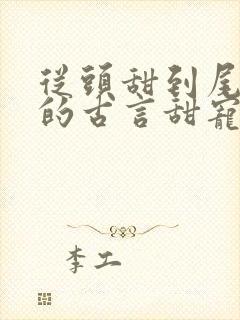 從頭甜到尾
的古言甜寵
李工